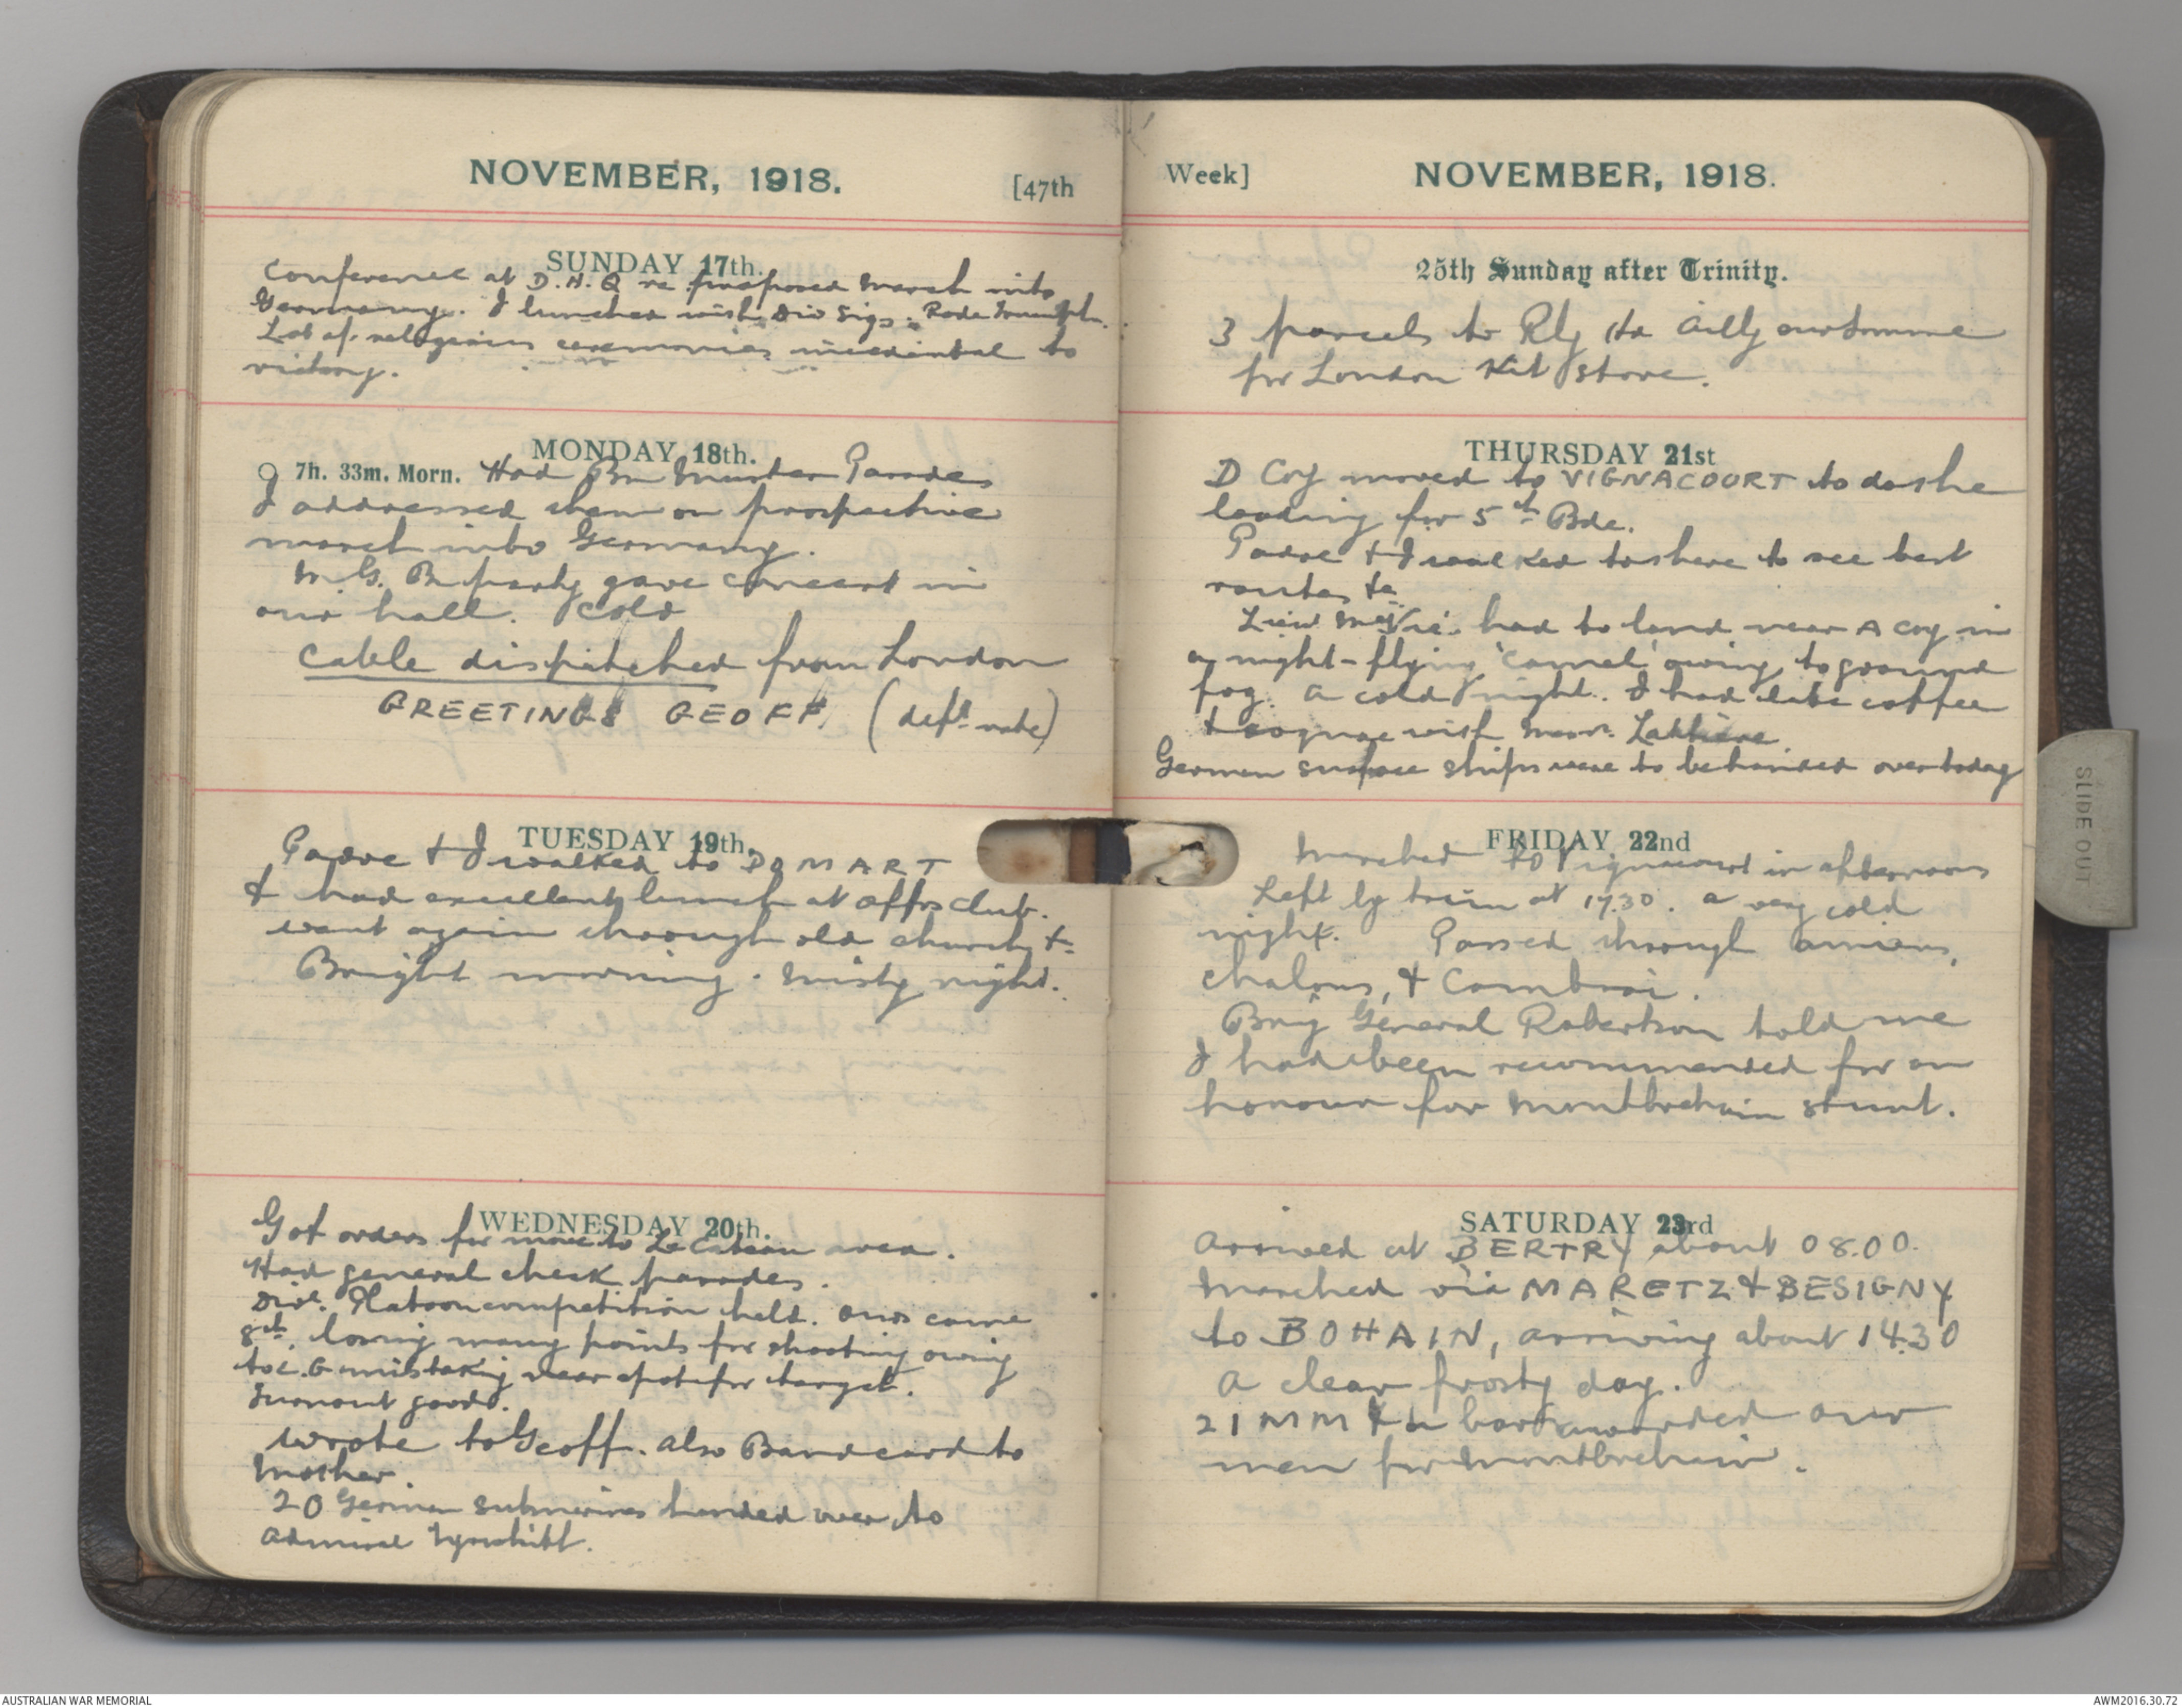 NOVEMBER, 1918.
[47th
SUNDAY 17th.
Conference at D.H.Q re proposed march into
Germany. I lunched with Div Sigs. Rode Triumph.
Lot of religious ceremonies incidental to
victory.
MONDAY 18th.
7h. 33m. Morn. Had Bn Muster Parade
I addressed them on prospective
march into Germany.
M.G. Bn party gave concert in
our hall. Cold
Cable dispatched from London
GREETINGS GEOFF (defd rate)
TUESDAY 19th.
Padre & I walked to DOMART
& had excellent lunch at offrs club.
went again through old church &c
Bright morning. Misty night.
WEDNESDAY 20th.
Got orders for move to Le Cateau area.
Had general check parades.
Divl. Platoon competition held. Ours came
8th, losing many points for shooting owing
to L.G mistaking near spot for target.
Turnout good.
Wrote to Geoff. Also Band card to
Mother.
20 German submarines handed over to
Admiral Tyrwhitt.
Week]
NOVEMBER, 1918.
25th Sunday after Trinity.
3 parcels to Rly Stn Ailly sur Somme
for London Kit Store.
THURSDAY 21st
D Coy moved to VIGNACOURT to do the
loading for 5th Bde.
Padre & I walked to there to see best
routes &c
Lieut had to land near A Coy in
a night-flying 'Camel' owing to ground
fog. A cold night. I had late coffee
& cognac with
German surface ships were to be handed over today
FRIDAY 22nd
Marched to Vignacourt in afternoon
Left by train at 17.30. A very cold
night. Passed through Amiens,
Chalons, & Cambrai.
Brig General Robertson told me
I had been recommended for an
honour for Montbrehain stunt.
SATURDAY 23rd
Arrived at BERTRY about 08.00.
Marched via MARETZ & BESIGNY
to BOHAIN, arriving about 14.30
A clear frosty day.
21 MM & a bar awarded our
men for Montbrehain.
SLIDE OUT
AUSTRALIAN WAR MEMORIAL
AWM2016.30.72